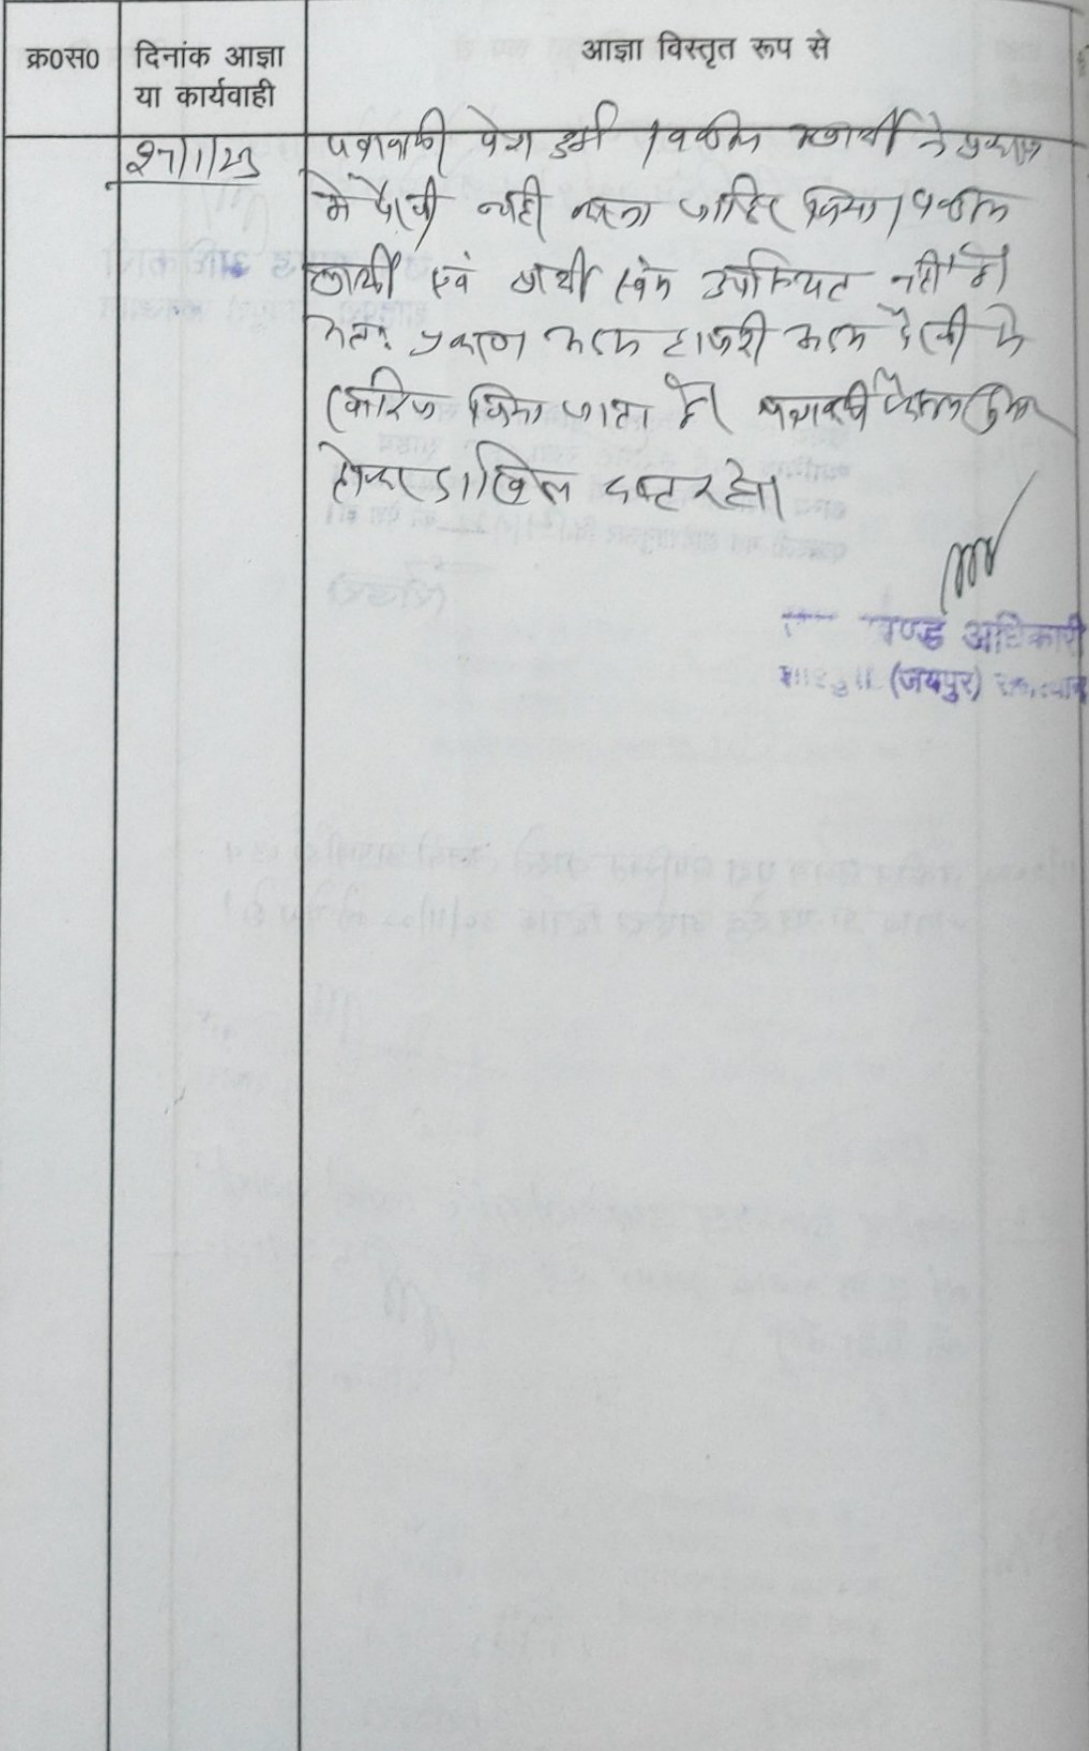 क्र0स0 दिनांक आज्ञा आज्ञा विस्तृत रूप से
या कार्यवाही
27/1/23 पत्रावली पेश हुई । वकील प्रार्थी ने प्रकरण
मे पैरवी नही करना जाहिर किया । वकील
प्रार्थी एवं प्रार्थी स्वंय उपस्थित नहीं है।
अतः प्रकरण अदम हाजरी अदम पैरवी मे
खारिज किया जाता है। पत्रावली फैसल शुमार
होकर दाखिल दफ्तर हो।
खण्ड अधिकारी
(जयपुर)